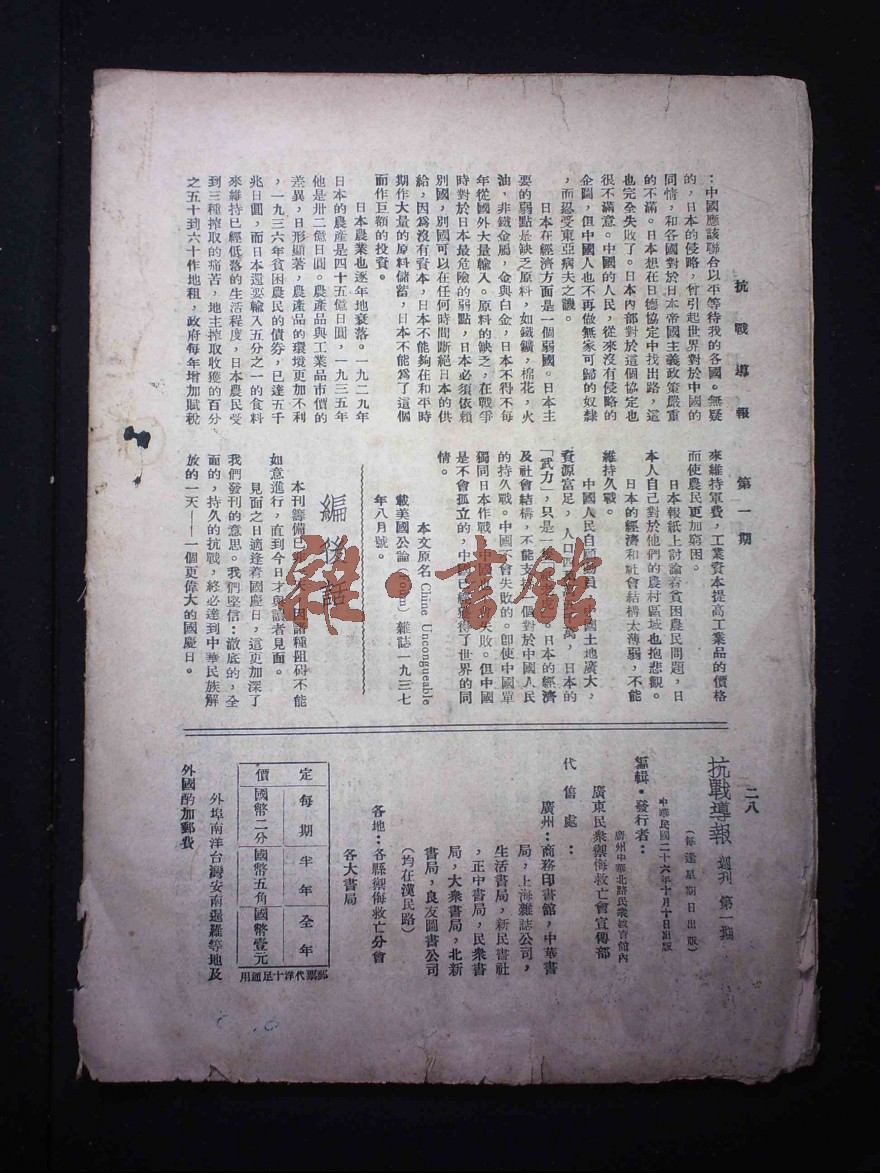 抗戰導報　第一期
二八
：中國應該聯合以平等待我的各國。無疑
的，日本的侵略，曾引起世界對於中國的
同情，和各國對於日本帝國主義政策嚴重
的不滿。日本想在日德協定中找出路，這
也完全失敗了。日本內部對於這個協定也
很不滿意。中國的人民，從來沒有侵略的
企圖，但中國人也不再做無家可歸的奴隸
，而忍受東亞病夫之譏。
日本在經濟方面是一個弱國。日本主
要的弱點是缺乏原料，如鐵鑛，棉花，火
油，非鐵金屬，金與白金，日本不得不每
年從國外大量輸入。原料的缺乏，在戰爭
時對於日本最危險的弱點，日本必須依賴
別國，別國可以在任何時間斷絕日本的供
給，因為沒有資本，日本不能夠在和平時
期作大量的原料儲蓄，日本不能為了這個
而作巨額的投資。
日本農業也逐年地衰落。一九二九年
日本的農產是四十五億日圓，一九三五年
他是卅二億日圓。農產品與工業品市價的
差異，日形顯著，農產品的環境更加不利
，一九三六年貧困農民的債券，已達五千
兆日圓，而日本還要輸入五分之一的食料
來維持已經低落的生活程度，日本農民受
到三種搾取的痛苦，地主搾取收獲的百分
之五十到六十作地租，政府每年增加賦稅
來維持軍費，工業資本提高工業品的價格
而使農民更加窮困。
日本報紙上討論着貧困農民問題，日
本人自己對於他們的農村區域也抱悲觀。
日本的經濟和社會結構太薄弱，不能
維持久戰。
中國人民自願
土地廣大，
資源富足，人口四
萬，日本的
「武力」，只是一
。日本的經濟
及社會結構，不能支持
個對於中國人民
的持久戰。中國不會失敗的。即使中國單
獨同日本作戰，中國
失敗。但中國
是不會孤立的，中國已經
得了世界的同
情。
本文原名 Chine Unconguerable
載美國公論（Forum）雜誌一九三七
年八月號。
編後話
本刊籌備已
，因諸種阻碍不能
如意進行，直到今日才與讀者見面。
見面之日適逢着國慶日，這更加深了
我們發刊的意思。我們堅信：澈底的，全
面的，持久的抗戰，終必達到中華民族解
放的一天——一個更偉大的國慶日。
抗戰導報　週刊　第一期
（每逢星期日出版）
中華民國二十六年十月十日出版
編輯・發行者：
廣州中華北路民衆教育館內
廣東民衆禦侮救亡會宣傳部
代售處：
廣州：商務印書館，中華書
局，上海雜誌公司，
生活書局，新民書社
，正中書局，民衆書
局，大衆書局，北新
書局，良友圖書公司
（均在漢民路）
各地：各縣禦侮救亡分會
各大書局
定價
每期　國幣二分
半年　國幣五角
全年　國幣壹元
郵票代洋十足通用
外埠南洋台灣安南暹羅等地及
外國酌加郵費
雜・書館